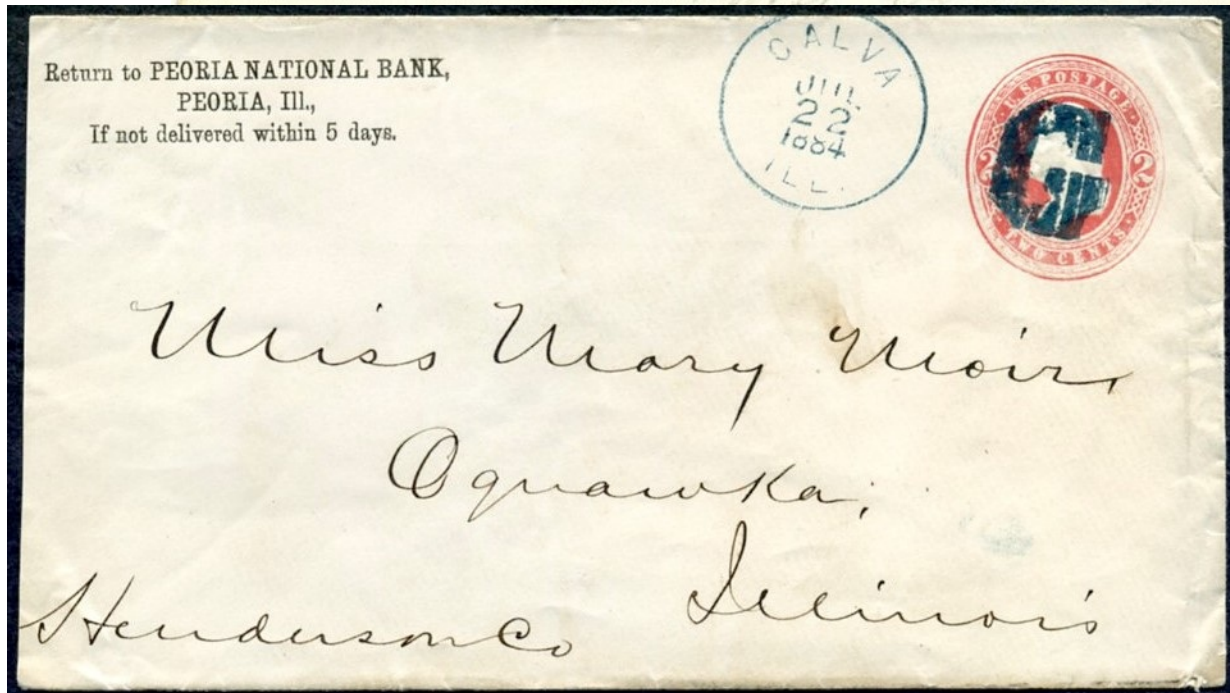 Return to PEORIA NATIONAL BANK,
PEORIA, Ill.,
If not delivered within 5 days.
GALVA
JUL
22
1884
ILL.
U.S. POSTAGE
2 2
TWO CENTS
G
Miss Mary Moir,
Oquawka,
Illinois
Henderson Co